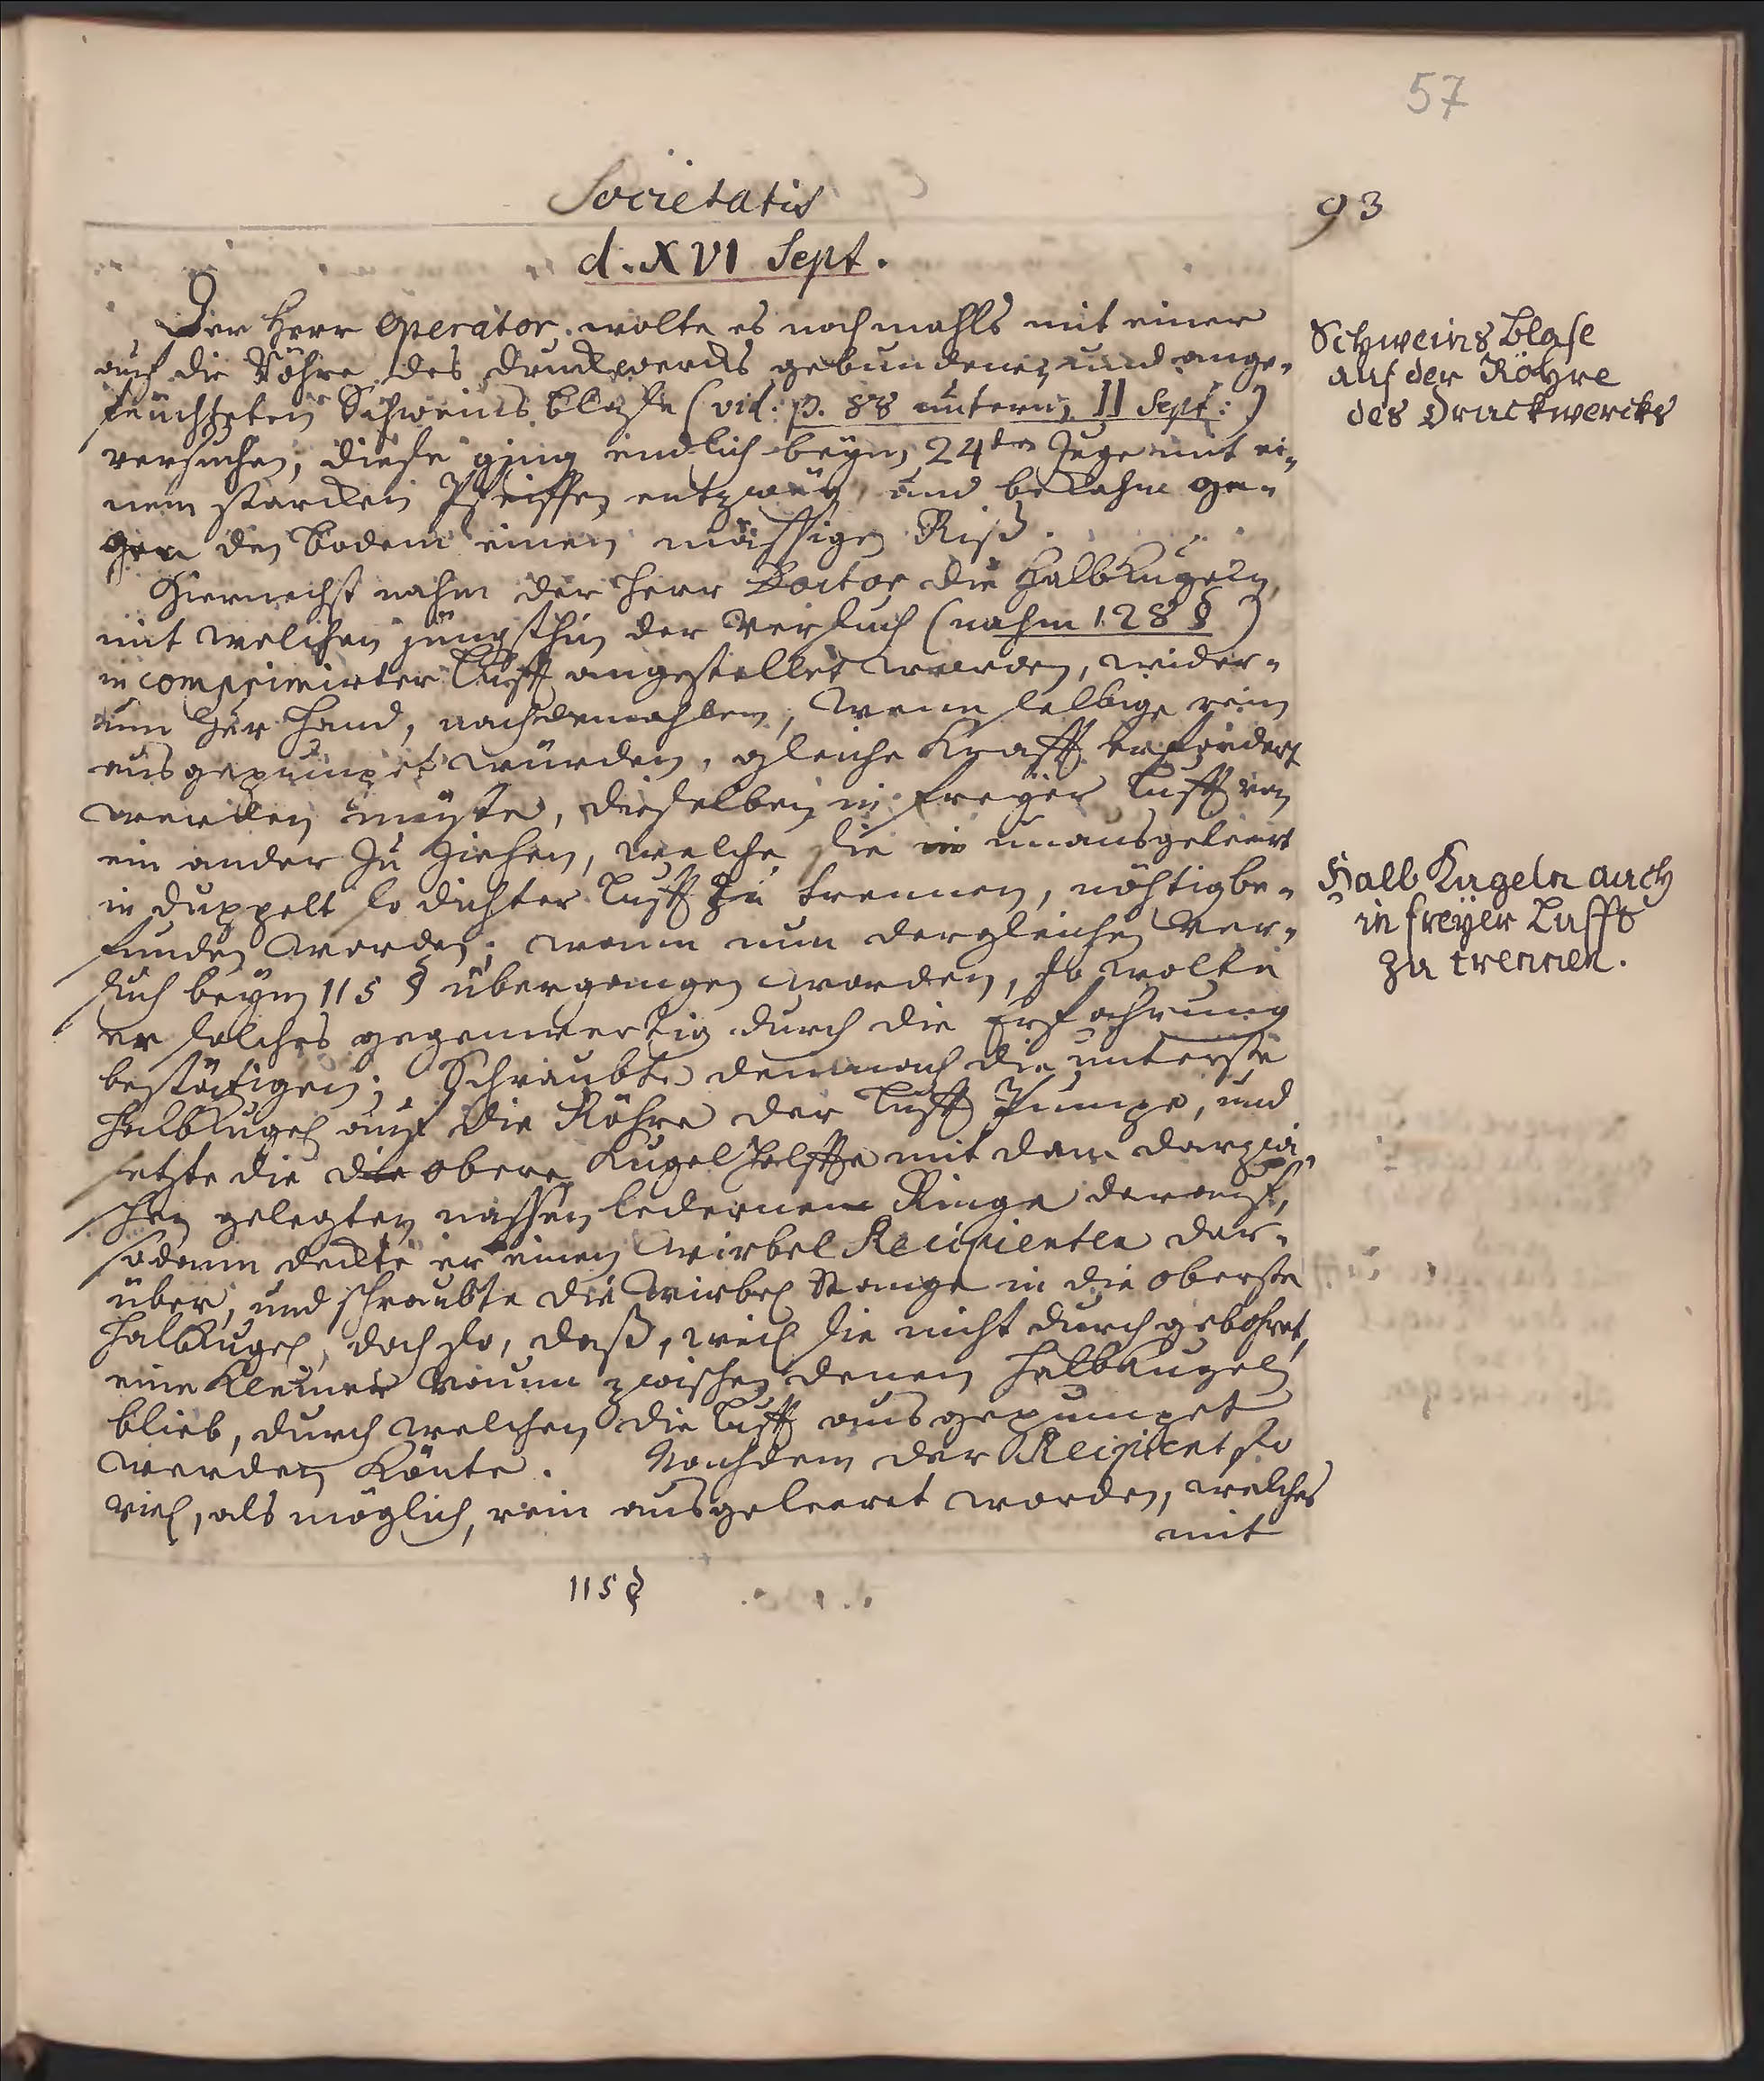 57
Societatis
93
d. XVI Sept.
Der Herr Operator wolte es nochmahls mit einer
auf die Röhre des Druckwercks gebundenen und ange-
feuchteten Schweins Blase (vid. p. 88 unterm 11 Sept:)
versuchen, diese ging endlich beym 24ten Zuge mit ei-
nem starcken Pfeiffen entzwey, und bekahm ge-
gen den Bodem einen mässigen Riß.
Hiernechst nahm der Herr Doctor die Halbkugeln,
mit welchen jüngsthin der Versuch (nahm 128 §)
in comprimirter Lufft angestellet worden, wider-
um zur Hand, nachdemahlen, wenn selbige rein
ausgepumpet würden, gleiche Krafft erfordert
werden müste, dieselben in freyer Lufft von
ein ander zu ziehen, welche sie in unausgeleert
in duppelt so dichter Lufft zu trennen, nöhtig be-
funden worden; wann nun dergleichen Ver-
such beym 115 § übergangen worden, so wolte
er solches gegenwertig durch die Erfahrung
bestätigen; Schraubte demnach die unterste
Halbkugel auf die Röhre der Lufft Pumpe, und
setzte die die obere Kugel Helffte mit dem darzwi-
schen gelegten nassen ledernem Ringe darauf,
sodann deckte er einen Wirbel Recipienten dar-
über, und schraubte die Wirbel Stange in die oberste
Halbkugel, doch so, daß, weil sie nicht durchgebohret,
eine kleiner Raum zwischen denen Halbkugeln
blieb, durch welchen die Lufft ausgepumpet
werden könte. Nachdem der Recipient so
viel, als möglich, rein ausgeleeret worden, welches
mit
115 §
Schweins Blase
auf der Röhre
des Druckwercks
Halb Kugeln auch
in freÿer Lufft
zu trennen.